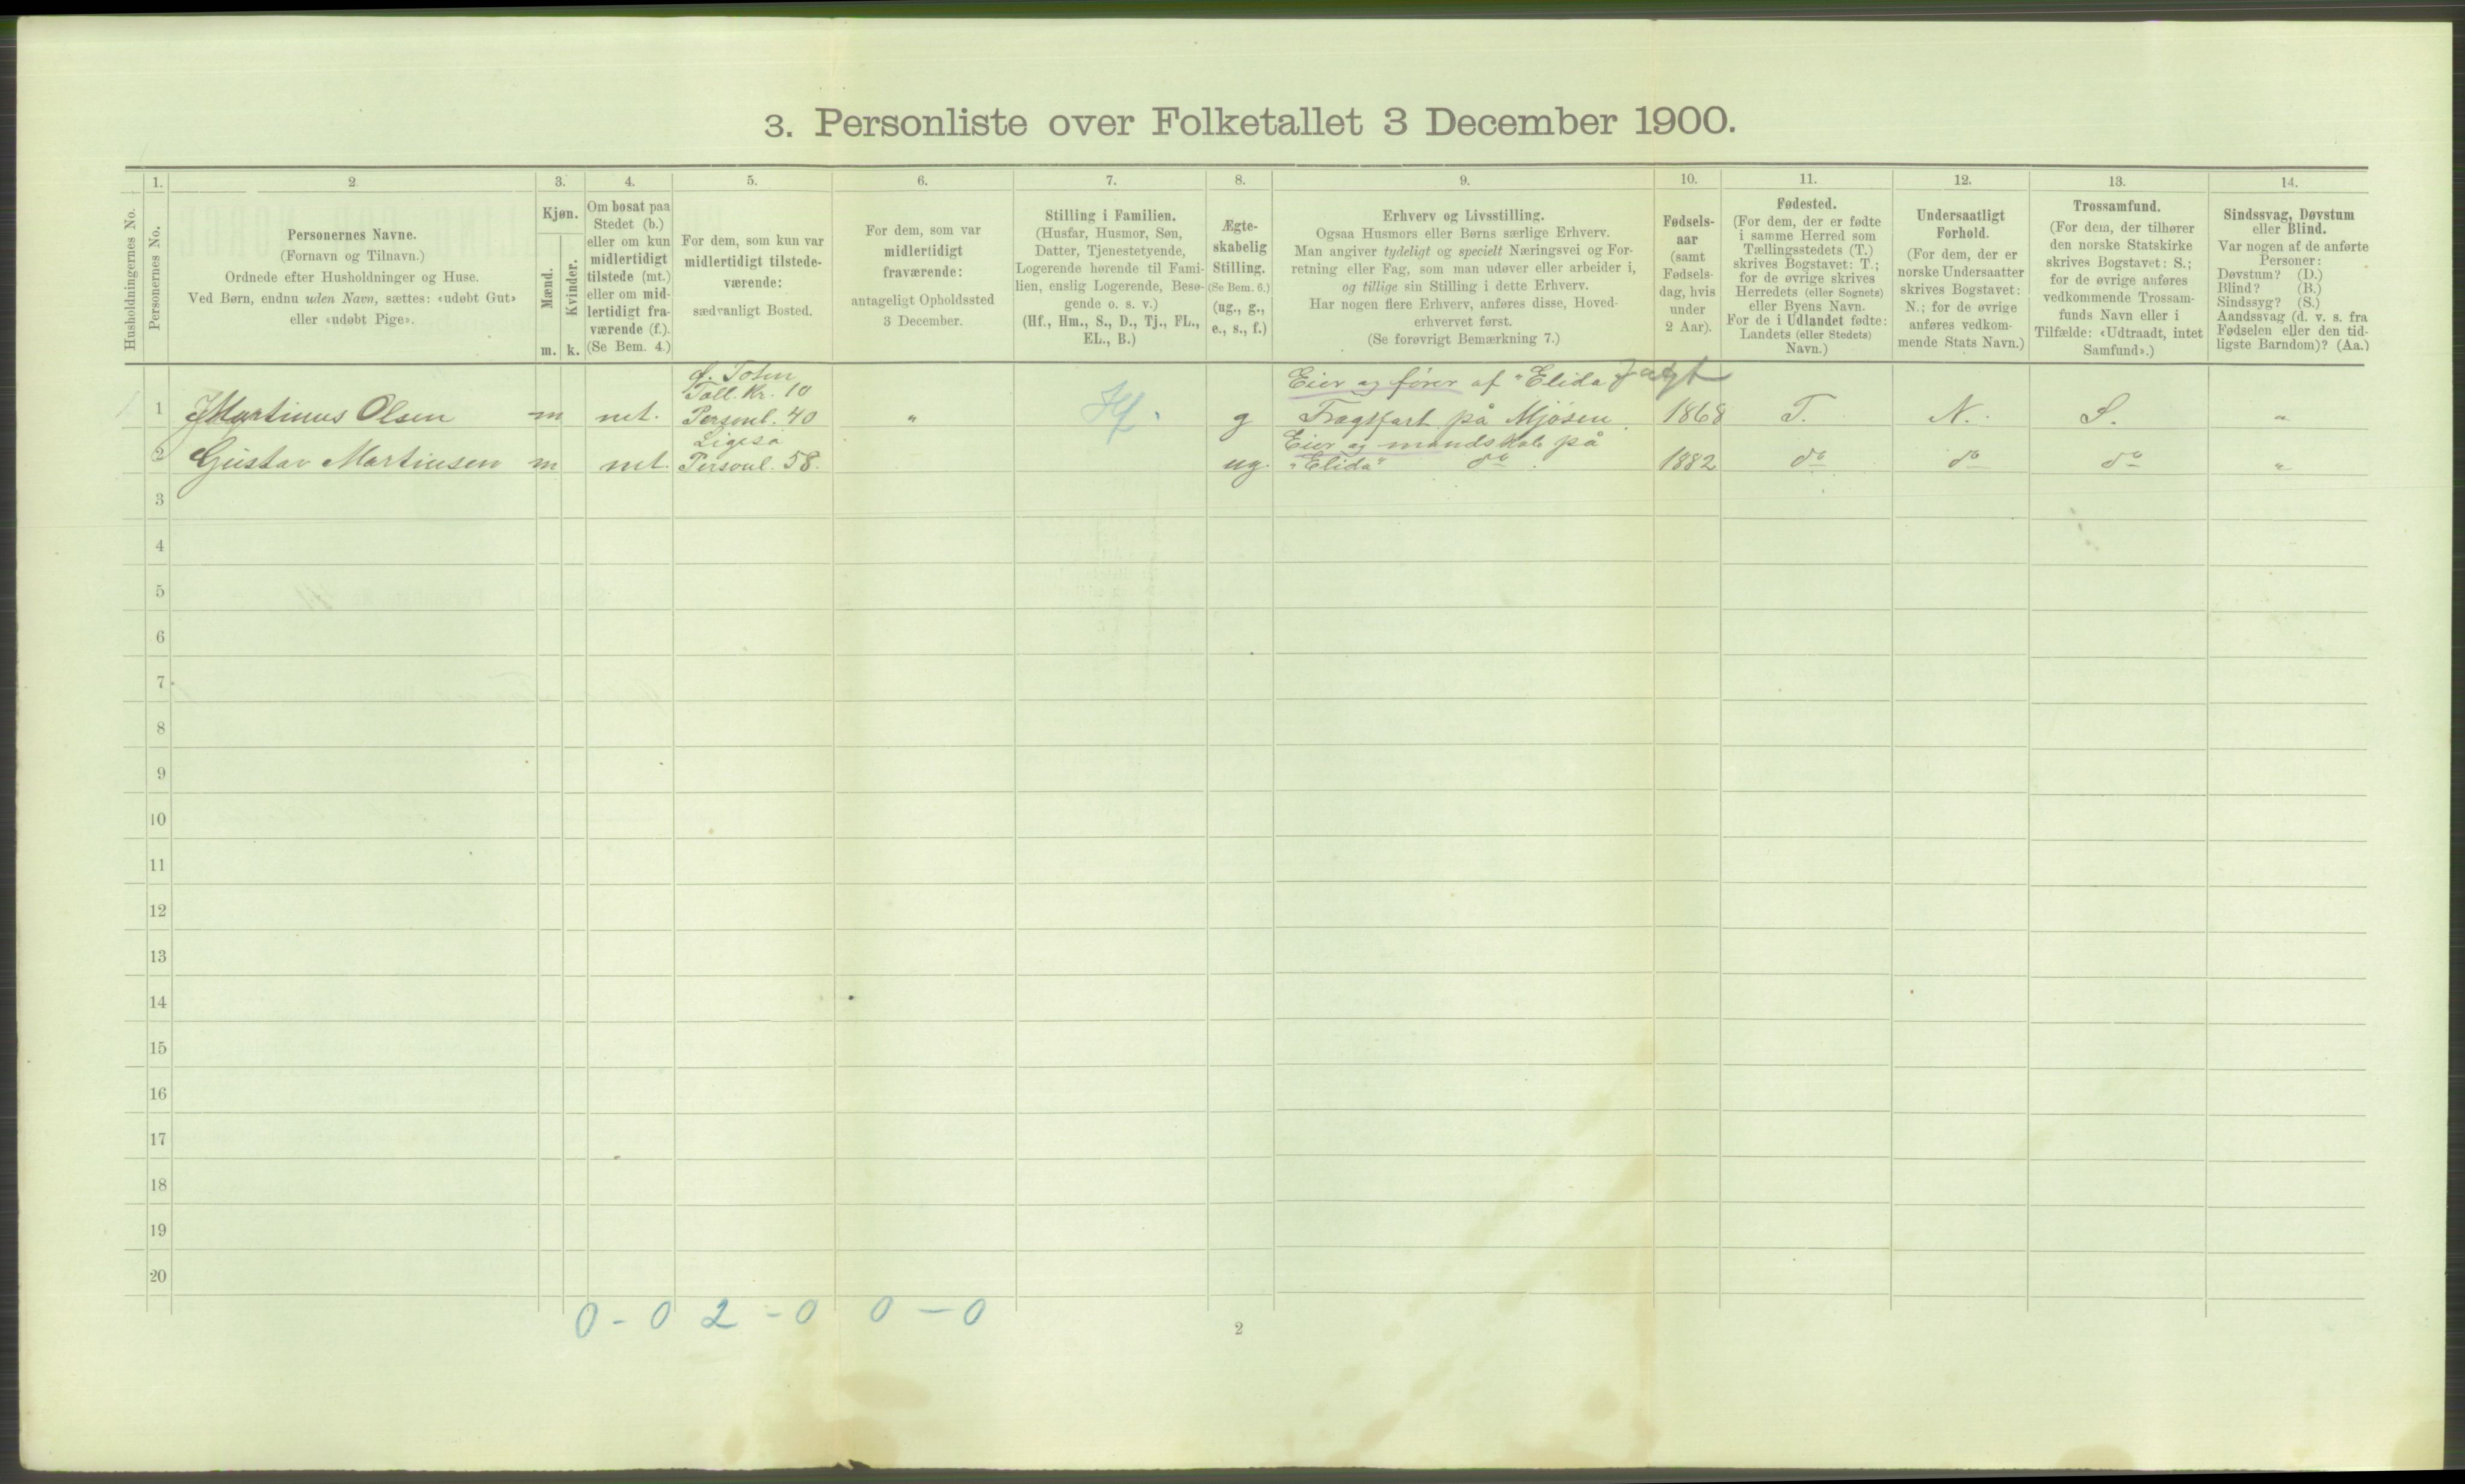 3. Personliste over Folketallet 3 December 1900.
Husholdningernes No.
1.
Personernes No.
2
Personernes Navne.
(Fornavn og Tilnavn.)
Ordnede efter Husholdninger og Huse.
Ved Børn, endnu uden Navn, sættes: «udøbt Gut»
eller «udøbt Pige».
3.
Kjøn.
Mænd.
Kvinder.
m. k.
4.
Om bosat paa
Stedet (b.)
eller om kun
midlertidigt
tilstede (mt.)
eller om mid-
lertidigt fra-
værende (f.).
(Se Bem. 4.)
5.
For dem, som kun var
midlertidigt tilstede-
værende:
sædvanligt Bosted.
6.
For dem, som var
midlertidigt
fraværende:
antageligt Opholdssted
3 December.
7.
Stilling i Familien.
(Husfar, Husmor, Søn,
Datter, Tjenestetyende,
Logerende hørende til Fami-
lien, enslig Logerende, Besø-
gende o. s. v.)
(Hf., Hm., S., D., Tj., FL.,
EL., B.)
8.
Ægte-
skabelig
Stilling.
(Se Bem. 6.)
(ug., g.,
e., s., f.)
9.
Erhverv og Livsstilling.
Ogsaa Husmors eller Børns særlige Erhverv.
Man angiver tydeligt og specielt Næringsvei og For-
retning eller Fag, som man udøver eller arbeider i,
og tillige sin Stilling i dette Erhverv.
Har nogen flere Erhverv, anføres disse, Hoved-
erhvervet først.
(Se forøvrigt Bemærkning 7.)
10.
Fødsels-
aar
(samt
Fødsels-
dag, hvis
under
2 Aar).
11.
Fødested.
(For dem, der er fødte
i samme Herred som
Tællingsstedets (T.)
skrives Bogstavet: T.;
for de øvrige skrives
Herredets (eller Sognets)
eller Byens Navn.
For de i Udlandet fødte:
Landets (eller Stedets)
Navn.)
12.
Undersaatligt
Forhold.
(For dem, der er
norske Undersaatter
skrives Bogstavet:
N.; for de øvrige
anføres vedkom-
mende Stats Navn.)
13.
Trossamfund.
(For dem, der tilhører
den norske Statskirke
skrives Bogstavet: S.;
for de øvrige anføres
vedkommende Trossam-
funds Navn eller i
Tilfælde: «Udtraadt, intet
Samfund».)
14.
Sindssvag, Døvstum
eller Blind.
Var nogen af de anførte
Personer:
Døvstum? (D.)
Blind? (B.)
Sindssyg? (S.)
Aandssvag (d. v. s. fra
Fødselen eller den tid-
ligste Barndom)? (Aa.)
Ø. Toten
Tall. Kr. 10
Eier og fører af "Elida Jagt
1 Martinus Olsen m mt. Personl. 40 " Hf. g Fragtfart på Mjøsen. 1868 T. N. S. "
Ligeså
Eier og mandskab på
2 Gustav Martinsen m mt. Personl. 58. ug. "Elida" do 1882 do do do "
3
4
5
6
7
8
9
10
11
12
13
14
15
16
17
18
19
20
0 - 0 2 - 0 0 - 0
2